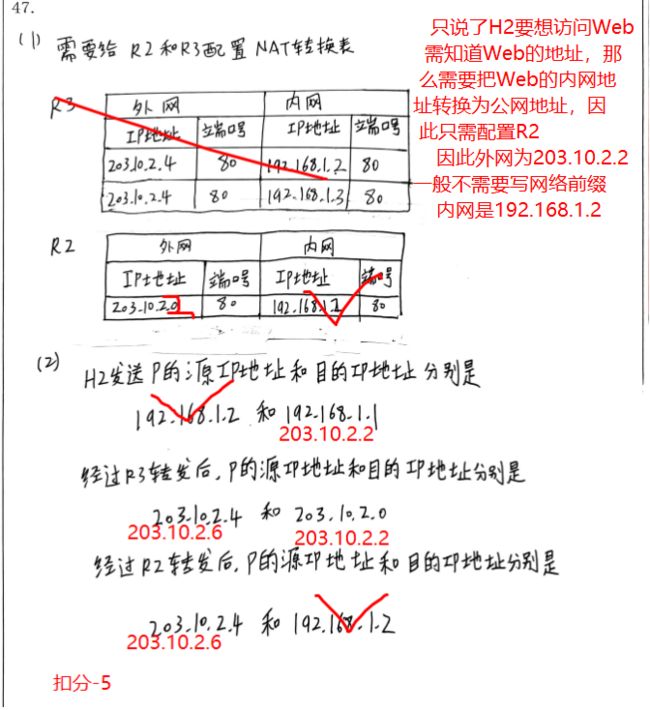 47.
(1) 需要给 R2和R3配置 NAT转换表
只说了H2要想访问Web
需知道Web的地址，那
么需要把Web的内网地
址转换为公网地址，因
此只需配置R2
因此外网为203.10.2.2
一般不需要写网络前缀
内网是192.168.1.2
R3
外网 内网
IP地址 端口号 IP地址 端口号
203.10.2.4 80 192.168.1.2 80
203.10.2.4 80 192.168.1.3 80
R2
外网 内网
IP地址 端口号 IP地址 端口号
203.10.2.0 80 80
(2) H2发送P的源IP地址和目的IP地址分别是
192.168.1.2 和 192.168.1.1
203.10.2.2
经过R3转发后，P的源IP地址和目的IP地址分别是
203.10.2.4 和 203.10.2.0
203.10.2.6 203.10.2.2
经过R2转发后，P的源IP地址和目的IP地址分别是
203.10.2.4 和 192.168.1.2
203.10.2.6
扣分-5